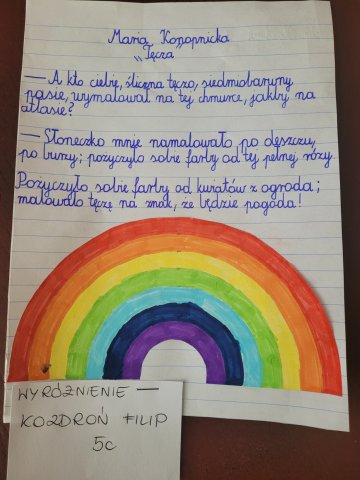 Maria Konopnicka
„Tęcza"
— A kto ciebie, śliczna tęczo, siedmiobarwny
pasie, wymalował na tej chmurce, jakby na
atłasie?
— Słoneczko mnie namalowało po deszczu,
po burzy; pożyczyło sobie farby od tej pełnej róży.
Pożyczyło sobie farby od kwiatów z ogroda;
malowało tęczę na znak, że będzie pogoda!
WYRÓŻNIENIE —
KOZDROŃ FILIP
5c